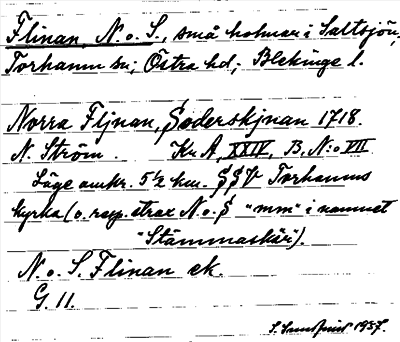 Flinan, N. o. S., små holmar i Saltsjön,
Torhamn sn; Östra hd; Blekinge l.
Norra Fljnan, Söderskjnan 1718.
N. Ström. Kr. A, XXIV, B, N:o VII
Läge omkr. 5½ km. SSV Torhamns
kyrka (o. resp. strax N. o. S "mm" i namnet
"Stämmaskär").
N. o. S. Flinan ek.
G. 11.
S. 1957.